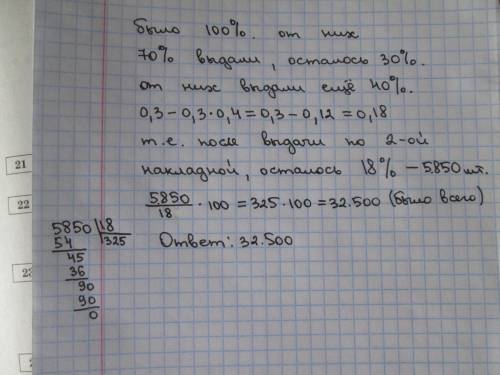 было 100%. от них
70% выдали, осталось 30%.
от них выдали ещё 40%.
0,3 – 0,3·0,4 = 0,3 – 0,12 = 0,18
т.е. после выдачи по 2-ой
накладной, осталось 18% – 5.850 шт.
5.850/18 · 100 = 325 · 100 = 32.500 (было всего)
Ответ: 32.500
5850 | 18
54 325
45
36
90
90
0
21
22